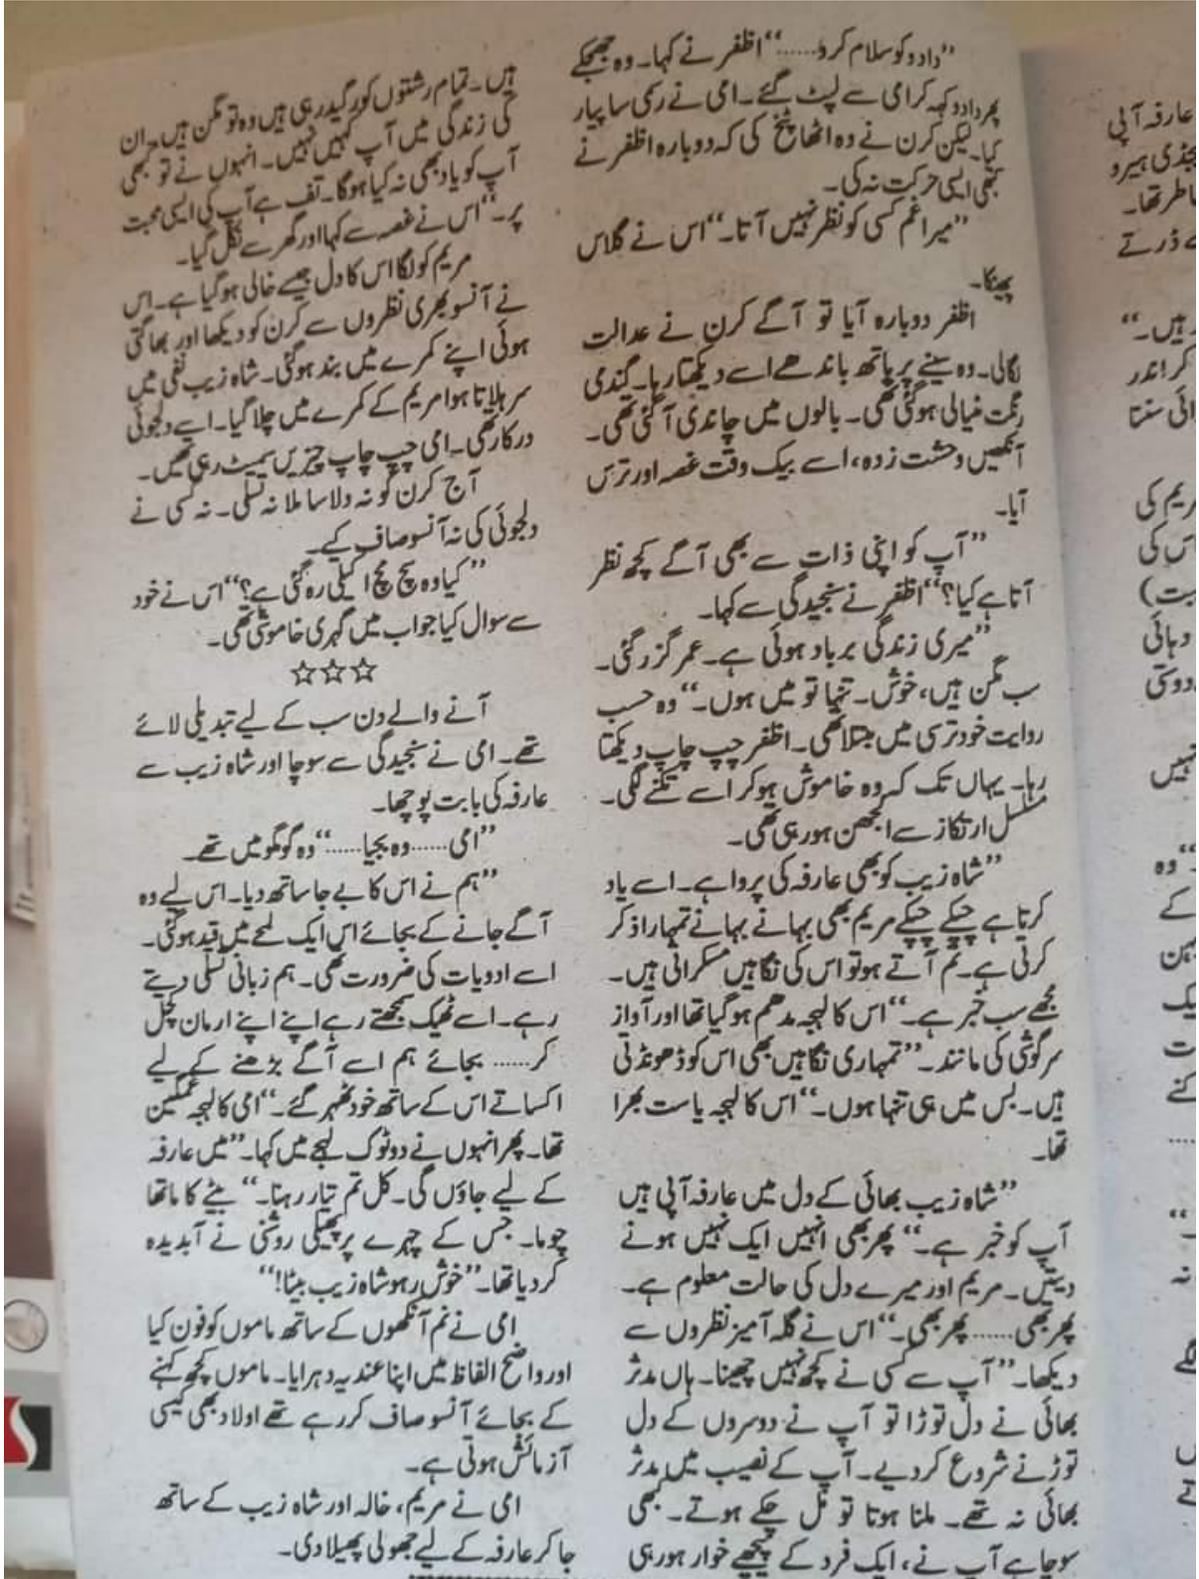 ”دادو کو سلام کرو......“ اظفر نے کہا۔ وہ جھجکے
پھر دادو کہہ کر امی سے لپٹ گئے۔ امی نے رسمی سا پیار
کیا۔ لیکن کرن نے وہ اٹھا پٹخ کی کہ دوبارہ اظفر نے
کبھی ایسی حرکت نہ کی۔
”میرا غم کسی کو نظر نہیں آتا۔“ اس نے گلاس
پھینکا۔
اظفر دوبارہ آیا تو آگے کرن نے عدالت
لگالی۔ وہ سینے پر ہاتھ باندھے اسے دیکھتا رہا۔ گندمی
رنگت مٹیالی ہوگئی تھی۔ بالوں میں چاندی آگئی تھی۔
آنکھیں وحشت زدہ، اسے بیک وقت غصہ اور ترس
آیا۔
”آپ کو اپنی ذات سے بھی آگے کچھ نظر
آتا ہے کیا؟“ اظفر نے سنجیدگی سے کہا۔
”میری زندگی برباد ہوئی ہے۔ عمر گزر گئی۔
سب مگن ہیں، خوش۔ تنہا تو میں ہوں۔“ وہ حسب
روایت خود ترسی میں مبتلا تھی۔ اظفر چپ چاپ دیکھتا
رہا۔ یہاں تک کہ وہ خاموش ہوکر اسے تکنے لگی۔
مسلسل ارتکاز سے الجھن ہورہی تھی۔
”شاہ زیب کو بھی عارفہ کی پروا ہے۔ اسے یاد
کرتا ہے چپکے چپکے مریم بھی بہانے بہانے تمہارا ذکر
کرتی ہے۔ تم آتے ہو تو اس کی نگاہیں مسکراتی ہیں۔
مجھے سب خبر ہے۔“ اس کا لہجہ مدھم ہوگیا تھا اور آواز
سرگوشی کی مانند۔ ”تمہاری نگاہیں بھی اس کو ڈھونڈتی
ہیں۔ بس میں ہی تنہا ہوں۔“ اس کا لہجہ یاست بھرا
تھا۔
”شاہ زیب بھائی کے دل میں عارفہ آپی ہیں
آپ کو خبر ہے۔“ پھر بھی انہیں ایک نہیں ہونے
دیتیں۔ مریم اور میرے دل کی حالت معلوم ہے۔
پھر بھی...... پھر بھی۔“ اس نے گلہ آمیز نظروں سے
دیکھا۔ ”آپ سے کسی نے کچھ نہیں چھینا۔ ہاں مدثر
بھائی نے دل توڑا تو آپ نے دوسروں کے دل
توڑنے شروع کردیے۔ آپ کے نصیب میں مدثر
بھائی نہ تھے۔ ملنا ہوتا تو مل چکے ہوتے۔ کبھی
سوچا ہے آپ نے، ایک فرد کے پیچھے خوار ہورہی
ہیں۔ تمام رشتوں کو رگید رہی ہیں وہ تو مگن ہیں۔ ان
کی زندگی میں آپ کہیں نہیں۔ انہوں نے تو کبھی
آپ کو یاد بھی نہ کیا ہوگا۔ تف ہے آپ کی ایسی محبت
پر۔“ اس نے غصہ سے کہا اور گھر سے نکل گیا۔
مریم کو لگا اس کا دل جیسے خالی ہوگیا ہے۔ اس
نے آنسو بھری نظروں سے کرن کو دیکھا اور بھاگتی
ہوئی اپنے کمرے میں بند ہوگئی۔ شاہ زیب نفی میں
سر ہلاتا ہوا مریم کے کمرے میں چلا گیا۔ اسے دلجوئی
درکار تھی۔ امی چپ چاپ چیزیں سمیٹ رہی تھیں۔
آج کرن کو نہ دلاسا ملا نہ تسلی۔ نہ کسی نے
دلجوئی کی نہ آنسو صاف کیے۔
”کیا وہ سچ مچ اکیلی رہ گئی ہے؟“ اس نے خود
سے سوال کیا جواب میں گہری خاموشی تھی۔
☆☆☆
آنے والے دن سب کے لیے تبدیلی لائے
تھے۔ امی نے سنجیدگی سے سوچا اور شاہ زیب سے
عارفہ کی بابت پوچھا۔
”امی...... وہ بجیا......“ وہ گومگو میں تھے۔
”ہم نے اس کا بے جا ساتھ دیا۔ اس لیے وہ
آگے جانے کے بجائے اس ایک لمحے میں قید ہوگئی۔
اسے ادویات کی ضرورت تھی۔ ہم زبانی تسلی دیتے
رہے۔ اسے ٹھیک سمجھتے رہے اپنے اپنے ارمان کچل
کر...... بجائے ہم اسے آگے بڑھنے کے لیے
اکساتے اس کے ساتھ خود ٹھہر گئے۔“ امی کا لہجہ غمگین
تھا۔ پھر انہوں نے دوٹوک لہجے میں کہا۔ ”میں عارفہ
کے لیے جاؤں گی۔ کل تم تیار رہنا۔“ بیٹے کا ماتھا
چوما۔ جس کے چہرے پر پھیلی روشنی نے آبدیدہ
کردیا تھا۔ ”خوش رہو شاہ زیب بیٹا!“
امی نے نم آنکھوں کے ساتھ ماموں کو فون کیا
اور واضح الفاظ میں اپنا عندیہ دہرایا۔ ماموں کچھ کہنے
کے بجائے آنسو صاف کررہے تھے اولاد بھی کیسی
آزمائش ہوتی ہے۔
امی نے مریم، خالہ اور شاہ زیب کے ساتھ
جا کر عارفہ کے لیے جھولی پھیلا دی۔